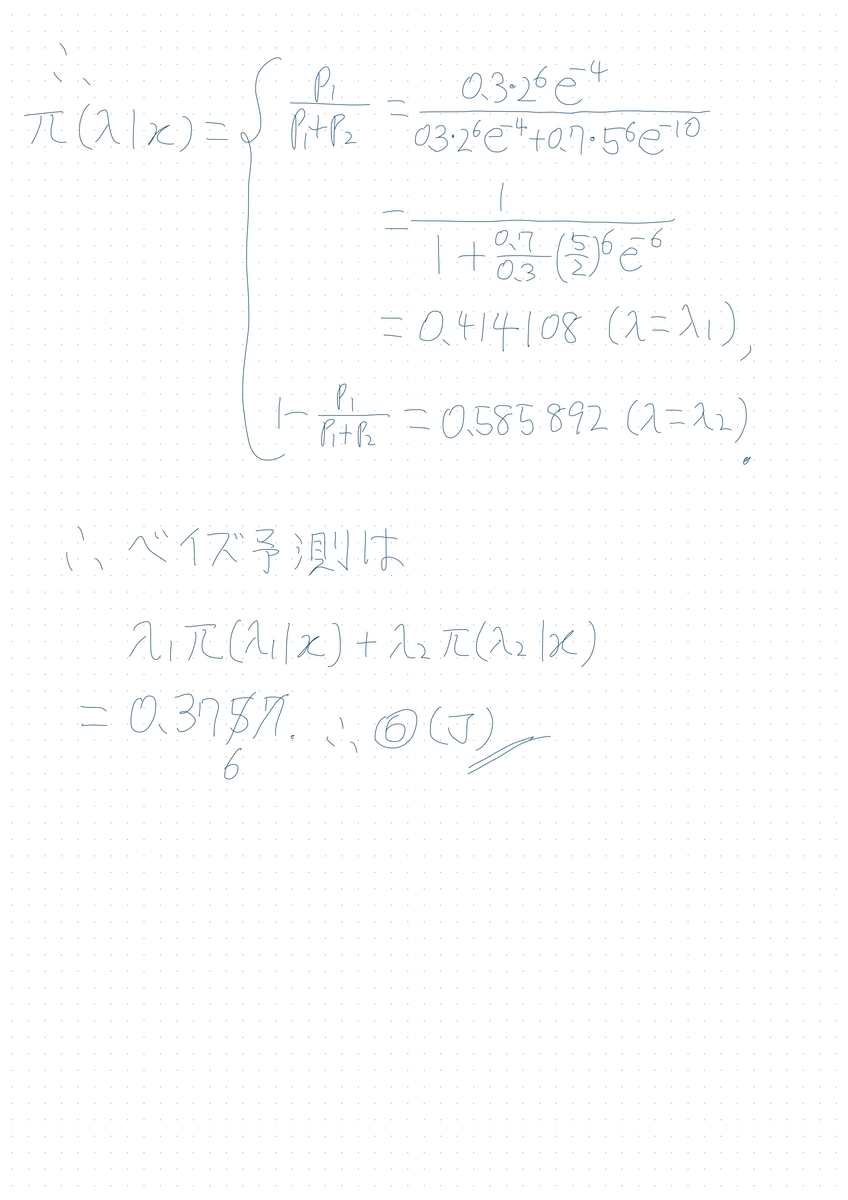 ∴
π(λ|x) = { P₁/(P₁+P₂) = 0.3·2⁶e⁻⁴/(03·2⁶e⁻⁴+0.7·5⁶e⁻¹⁰)
= 1/(1+(0.7/0.3)(5/2)⁶e⁻⁶)
= 0.414108 (λ=λ₁),
1 - P₁/(P₁+P₂) = 0.585892 (λ=λ₂).
∴ ベイズ予測は
λ₁π(λ₁|x) + λ₂π(λ₂|x)
= 0.3757. ∴ ⑥(J)
6